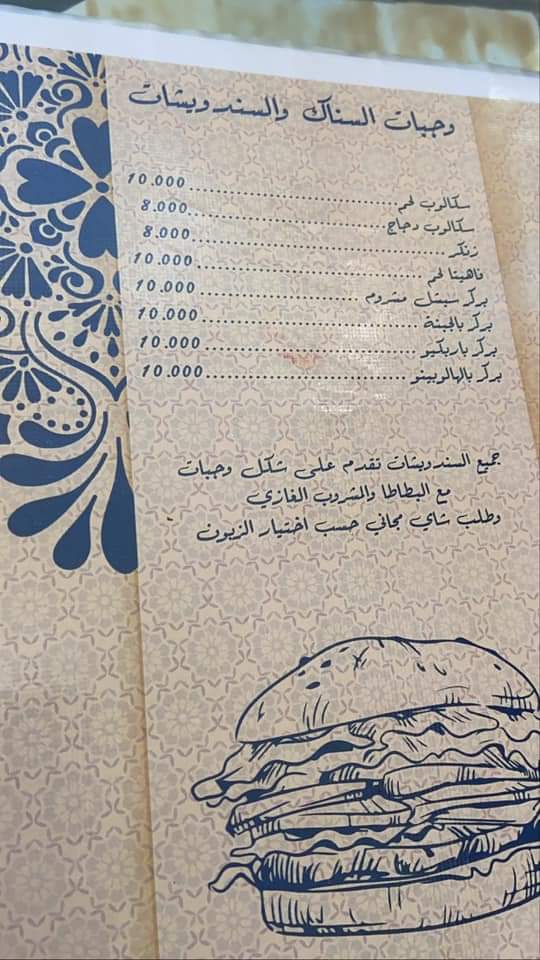 وجبات السناك والسندويشات
سكالوب لحم 10.000
سكالوب دجاج 8.000
زنكر 8.000
فاهيتا لحم 10.000
بركر سبيشل مشروم 10.000
بركر بالجبنة 10.000
بركر باربكيو 10.000
بركر بالهالوبينو 10.000
جميع السندويشات تقدم على شكل وجبات
مع البطاطا والمشروب الغازي
وطلب شاي مجاني حسب اختيار الزبون